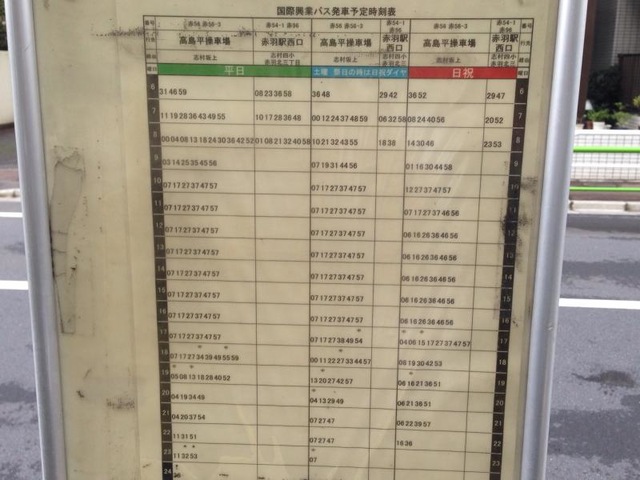 国際興業バス発車予定時刻表
番号 赤56 赤56-3 赤54-1 赤56 赤56 赤56-3 赤54-1 赤56 赤56 赤56-3 赤54-1 赤56 番号
行先 高島平操車場 赤羽駅西口 高島平操車場 赤羽駅西口 高島平操車場 赤羽駅西口 行先
経由 志村坂上 志村四小 赤羽北三丁目 志村坂上 志村四小 赤羽北三 志村坂上 志村四小 赤羽北三 経由
曜日 平日 土曜 祭日の時は日祝ダイヤ 日祝 曜日
6 31 46 59 08 23 36 58 38 48 29 42 36 52 29 47 6
7 11 19 28 36 43 49 55 10 17 28 36 48 00 12 24 37 48 59 06 32 58 08 24 40 56 20 52 7
8 00 04 08 13 18 24 30 36 42 52 01 08 21 32 40 58 10 21 32 43 55 18 38 14 30 46 23 53 8
9 03 14 25 35 45 56 07 19 31 44 56 01 16 30 44 58 9
10 07 17 27 37 47 57 07 17 27 37 47 57 12 27 37 47 57 10
11 07 17 27 37 47 57 07 17 27 37 47 57 07 17 27 37 46 56 11
12 07 17 27 37 47 57 07 17 27 37 47 57 06 16 26 36 46 56 12
13 07 17 27 37 47 57 07 17 27 37 47 57 06 16 26 36 46 56 13
14 07 17 27 37 47 57 07 17 27 37 47 57 06 16 26 36 46 56 14
15 07 17 27 37 47 57 07 17 27 37 47 57 06 16 26 36 46 56 15
16 07 17 27 37 47 57 07 17 27 37 47 57 06 16 26 36 46 56 16
17 07 17 27 37 47 57 07 17 27 39 49 54 04 06 15 17 27 37 47 57 17
18 07 17 27 34 39 49 55 59 00 11 22 27 33 44 57 08 19 30 42 53 18
19 05 08 13 18 28 40 52 13 20 27 42 57 06 16 21 36 51 19
20 04 19 34 49 04 13 29 49 06 21 36 51 20
21 04 20 37 54 07 27 47 06 22 39 57 21
22 11 31 51 07 27 47 16 36 22
23 11 32 53 07 23
24